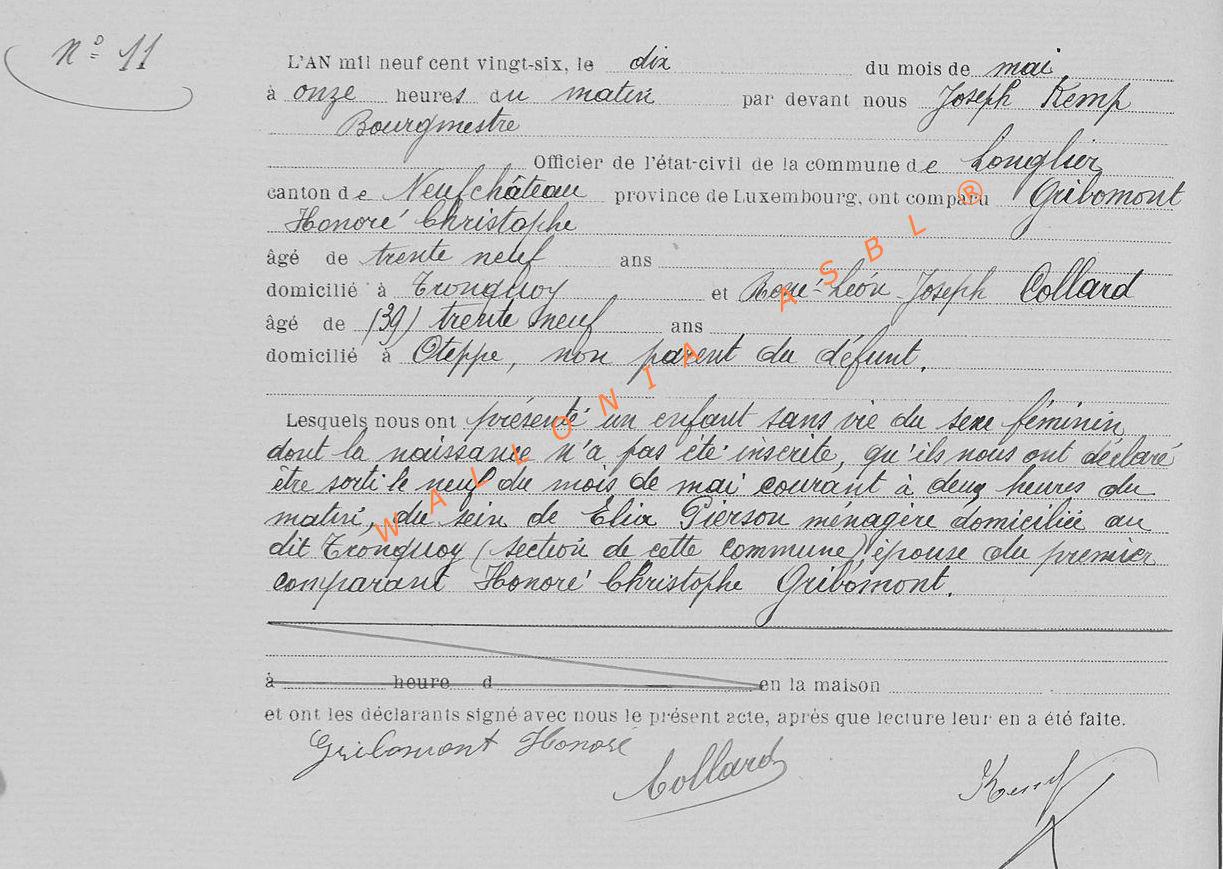 N° 11
L'AN mil neuf cent vingt-six, le dix du mois de mai
à onze heures du matin par devant nous Joseph Kemp
Bourgmestre
Officier de l'état-civil de la commune de Longlier
canton de Neufchâteau province de Luxembourg, ont comparu Gribomont
Honoré Christophe
âgé de trente neuf ans
domicilié à Tronquoy et René-Léon Joseph Collard
âgé de (39) trente neuf ans
domicilié à Oteppe, non parent du défunt.
Lesquels nous ont présenté un enfant sans vie du sexe féminin
dont la naissance n'a pas été inscrite, qu'ils nous ont déclaré
être sorti le neuf du mois de mai courant à deux heures du
matin, du sein de Elia Pierson ménagère domiciliée au
dit Tronquoy (section de cette commune) épouse du premier
comparant Honoré Christophe Gribomont.
à heure d en la maison
et ont les déclarants signé avec nous le présent acte, après que lecture leur en a été faite.
Gribomont Honoré
Collard
Kemp
WALLONIA ASBL ®